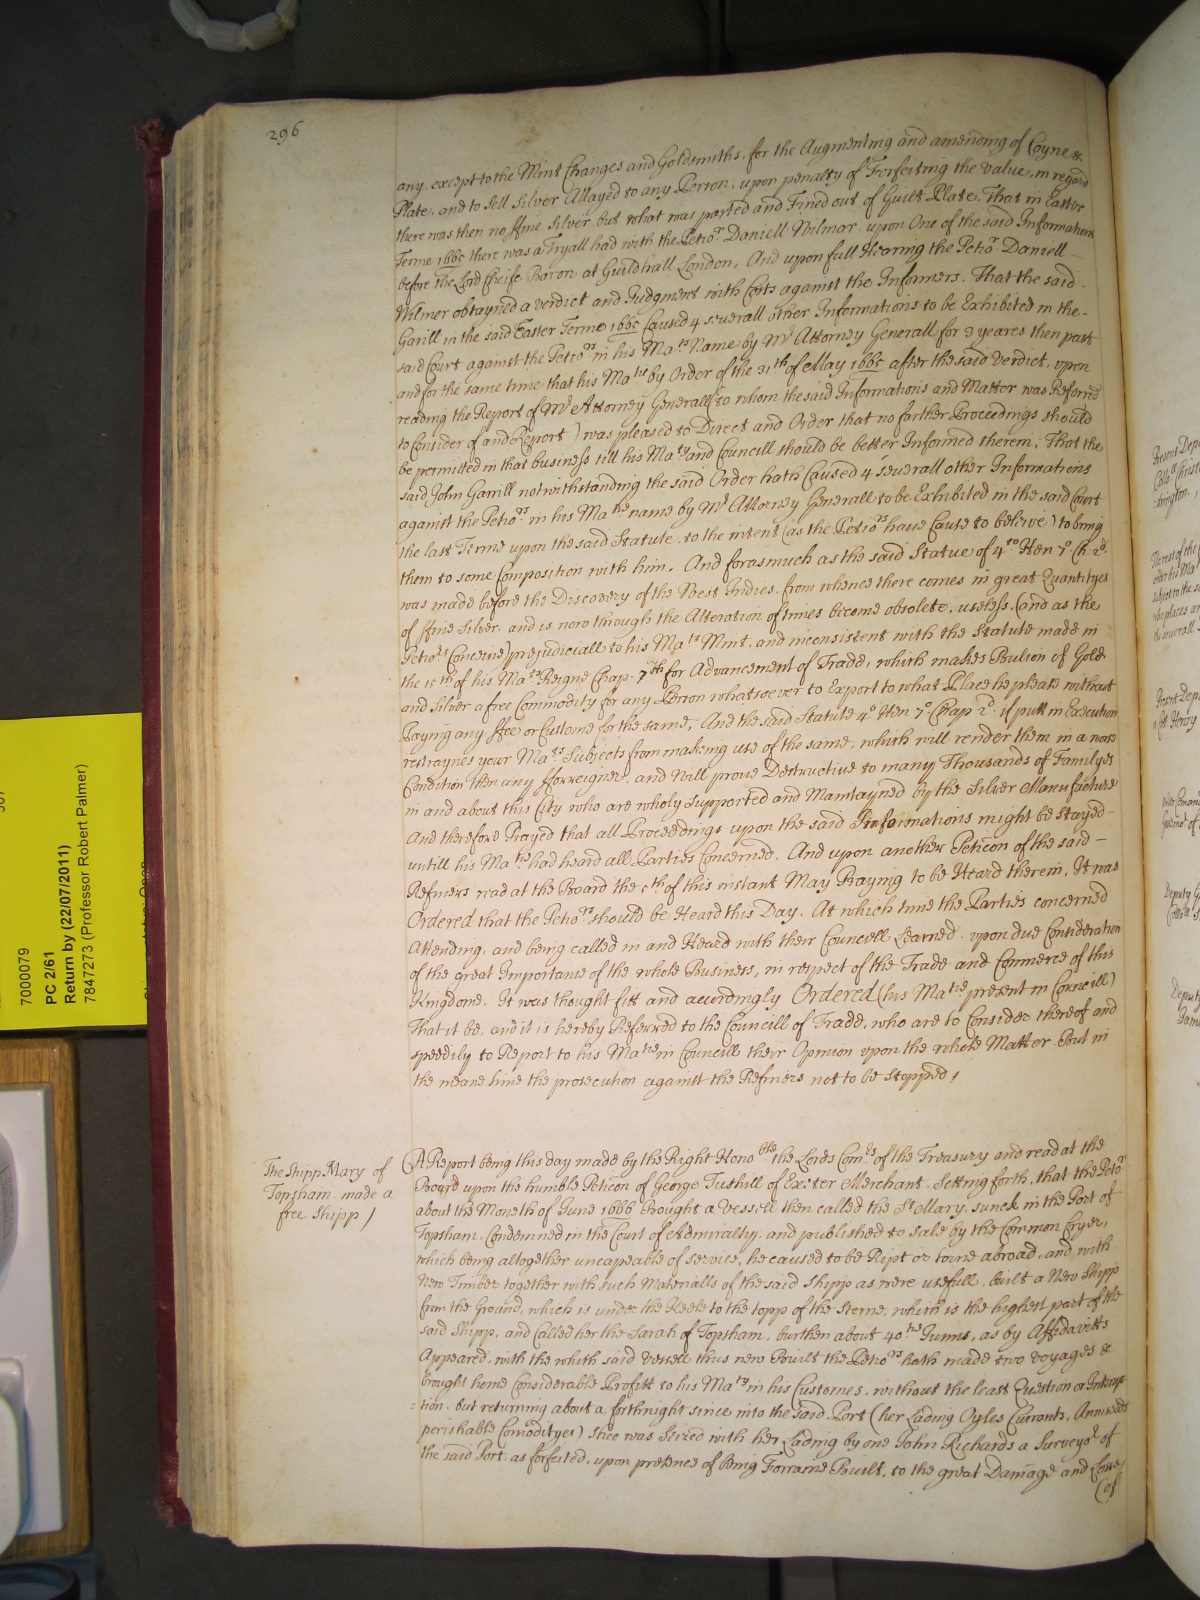 296
any, except to the Mint Changes and Goldsmiths, for the Augmenting and amending of Coyne &
Plate, and to sell silver Allayed to any Person, upon penalty of Forfeiting the value, in regard
there was then no ffine Silver but what was parted and Fined out of Guilt Plate. That in Easter
Terme 1665 there was a Tryall had with the Petior. Daniell Wilmar upon One of the said Information
before the Lord Cheife Baron at Guildhall London, And upon full Hearing the Petior Daniell -
Wilmer obtayned a verdict and Judgment with Costs against the Informers. That the said -
Garill in the said Easter Terme 1665 Caused 4 severall other Informations to be Exhibited in the -
said Court against the Petiors in his Mats Name by Mr Attorney Generall for 3 yeares then past
and for the same time that his Matie by Order of the 31th of May 1665 after the said verdict, upon
reading the Report of Mr Attorney Generall (to whom the said Informations and Matter was Referred
to Consider of and Report) was pleased to Direct and Order that no farther Proceedings should
be permitted in that business till his Maty and Councill should be better Informed therein; That the
said John Garrill notwithstanding the said Order hath Caused 4 severall other Informations
against the Petiors in his Maties name by Mr Attorney Generall to be Exhibited in the said Court
the last Terme upon the said Statute, to the intent (as the Petiors have Cause to beleive) to bring
them to some Composition with him. And forasmuch as the said Statue of 4to Hen 7o Ch. 2d.
was made before the Discovery of the West Indies, from whence there comes in great Quantityes
of ffine Silver, and is now through the Alteration of times become obsolete, useless, (and as the
Petiors Conceive) prejudiciall to his Mats Mint, and inconsistent with the Statute made in
the 15th of his Mats Reigne Chap. 7th for Advancement of Trade, which makes Bulion of Gold
and Silver a free Commodity for any Person whatsoever to Export to what Place he please without
Paying any ffee or Custome for the same, And the said Statute 4o Hen 7o Chap 2d. if putt in Execution
restraynes your Mats Subjects from making use of the same, which will render them in a worse
Condition then any fforreigner, and will prove Destructive to many Thousands of Familyes
in and about this City who are wholy supported and Maintayned by the Silver Manufacture
And therefore Prayed that all Proceedings upon the said Informations might be Stayed -
untill his Matie had heard all Parties Concerned. And upon another Peticon of the said -
Refiners read at the Board the 5th of this instant May Praying to be Heard therein, It was
Ordered that the Petiors should be Heard this Day. At which time the Parties concerned
Attending, and being called in and Heard with their Councell Learned, upon due Consideration
of the great Importance of the whole Business, in respect of the Trade and Commerce of this
Kingdome. It was thought fitt and accordingly Ordered (his Matie present in Councill)
That it be, and it is hereby Referred to the Councill of Trade, who are to Consider thereof and
speedily to Report to his Matie in Councill their Opinion upon the whole Matter. But in
the meane time the prosecution against the Refiners not to be Stopped /
The Shipp Mary of
Topsham made a
free Shipp /
A Report being this day made by the Right Honoble the Lords Comrs of the Treasury and read at the
Board upon the humble Peticon of George Tuthill of Exeter Merchant. Setting forth, that the Petior
about the Moneth of June 1666 Bought a Vessell then called the St Mary, sunck in the Port of
Topsham, Condemned in the Court of Admiralty, and published to sale by the Common Cryer,
which being altogether uncapeable of service, he caused to be Ript or torne abroad, and with
New Timber together with such Materialls of the said Shipp as were usefull, built a New Shipp
from the Ground, which is under the Keele to the topp of the Sterne, which is the highest part of the
said Shipp, and Called her the Sarah of Topsham, burthen about 40tie Tunns, as by Affidavitts
Appeared, with the which said Vessell thus new Built the Petiors hath made two voyages &
brought home Considerable Profitt to his Maty in his Customes, without the least Question or Interrup
=tion. but returning about a forthnight since into the said Port (her Lading Oyles Currants, Anniseeds
perishable Comodityes) Shee was Seized with her Lading by one John Richards a Surveyor of
the said Port, as forfeited, upon pretence of being Forraine Built, to the great Damage and Losse /
(of
7000079
PC 2/61
Return by (22/07/2011)
7847273 (Professor Robert Palmer)